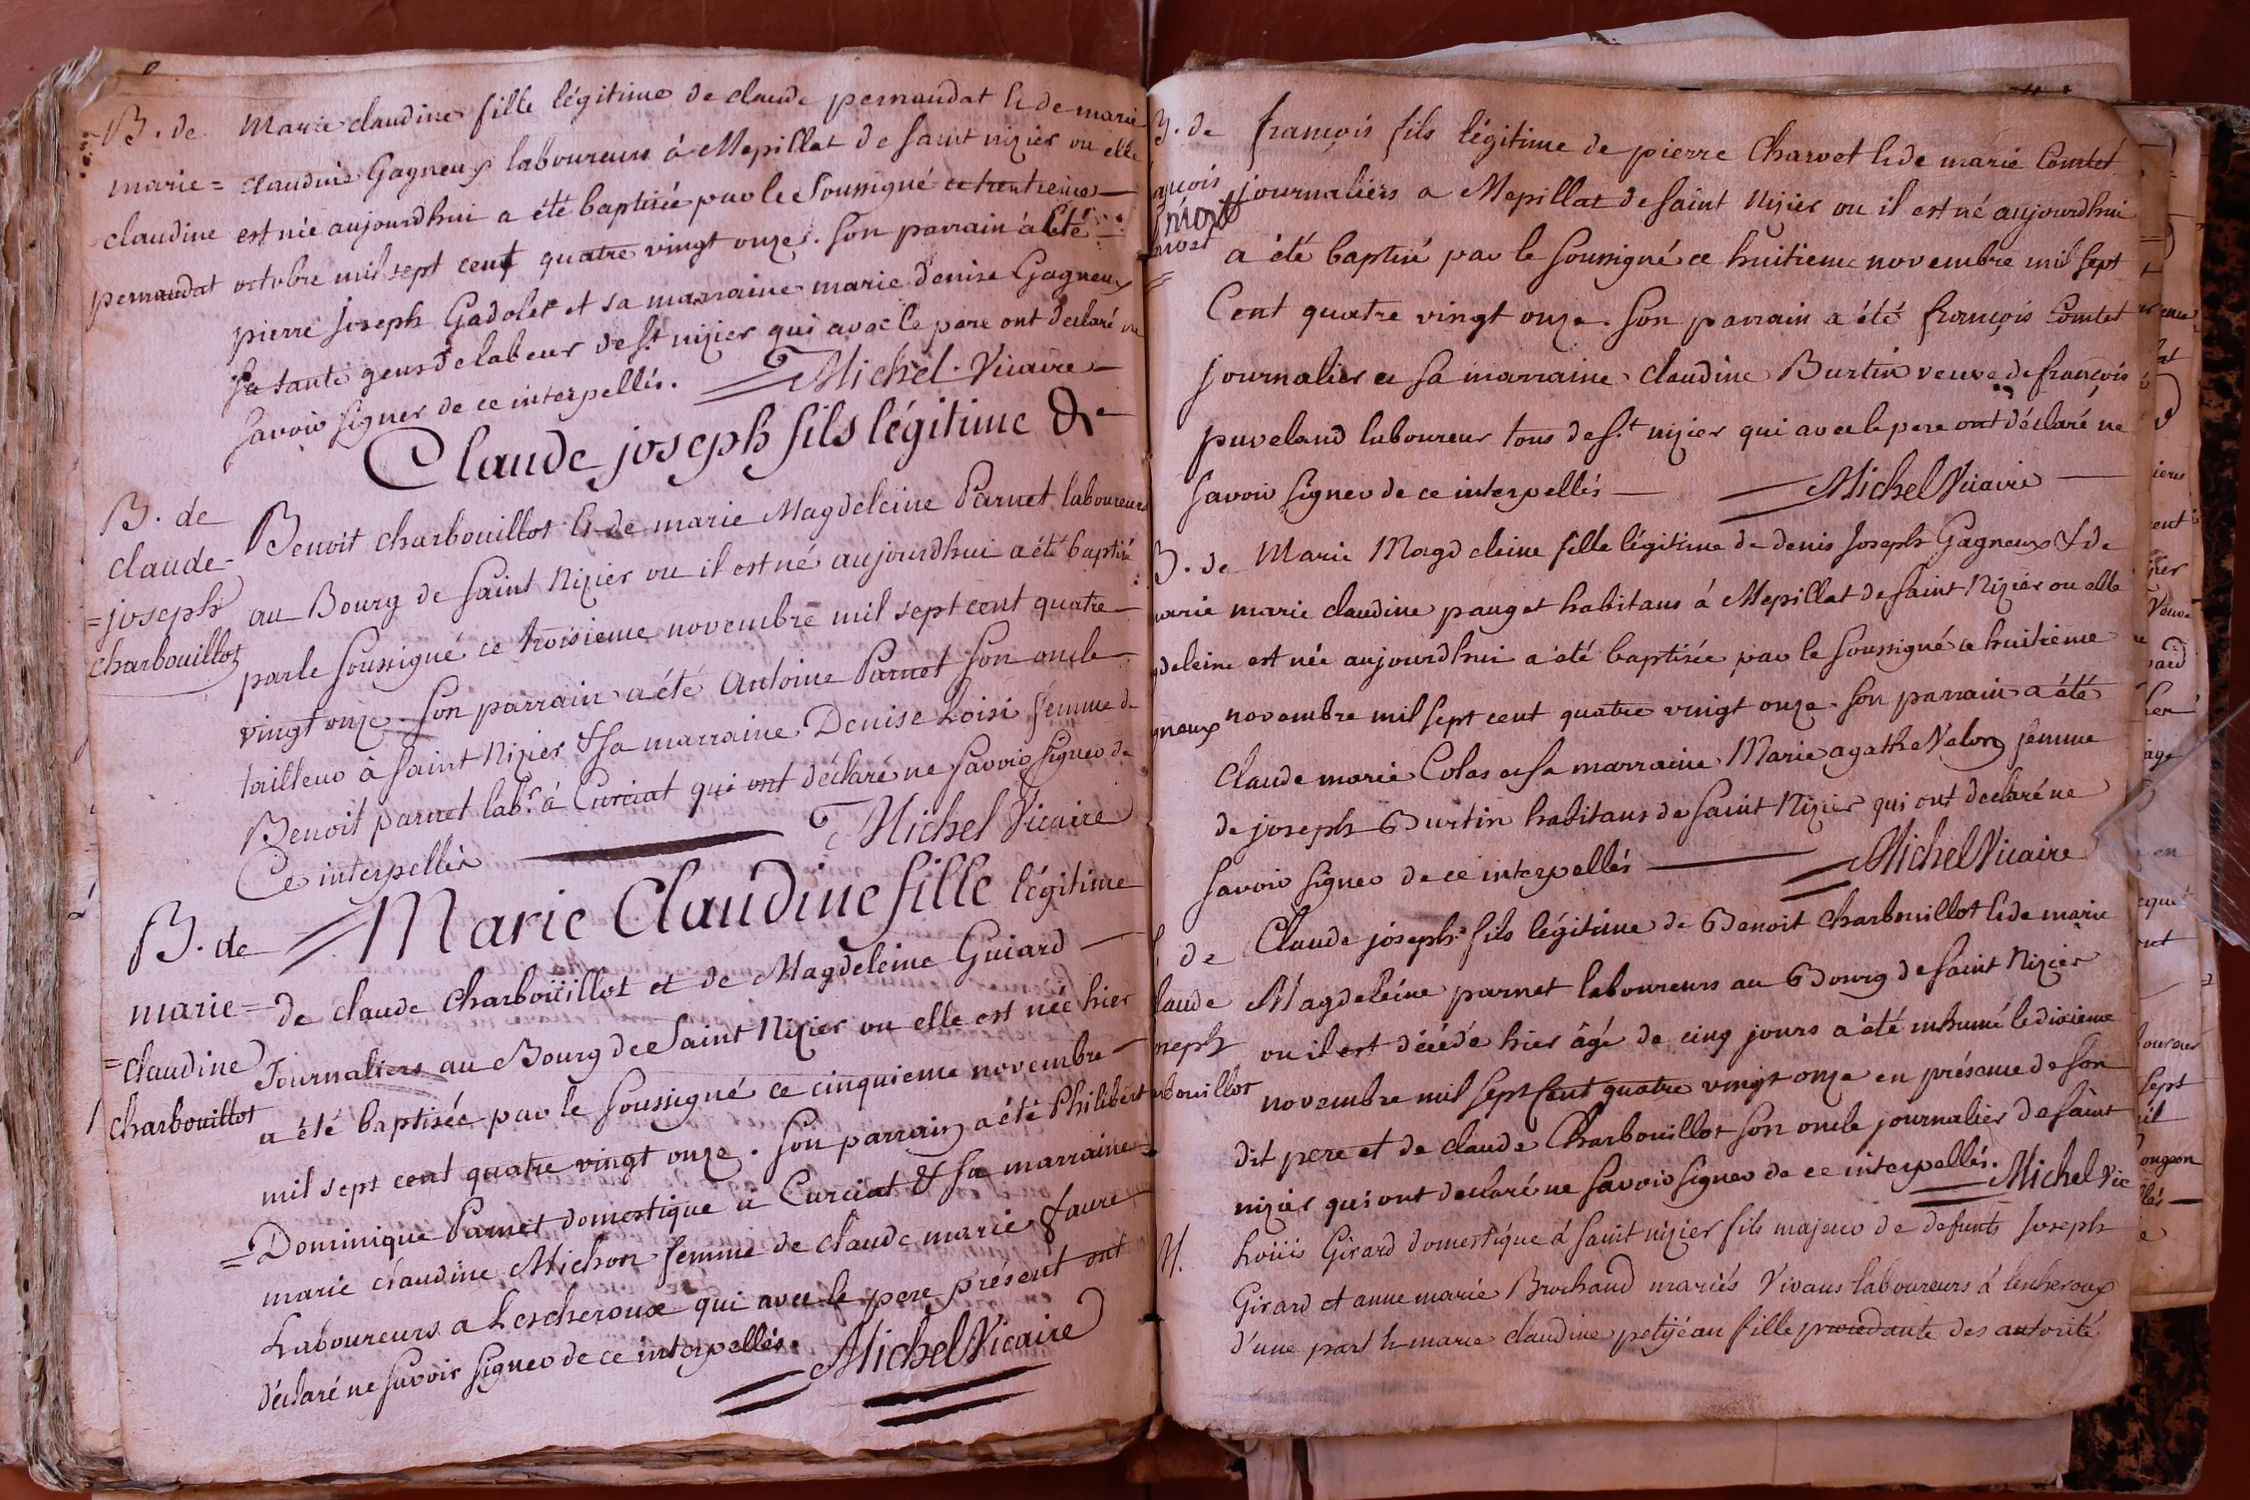 B. de Marie claudine fille légitime de claude pernaudat & de marie
marie = claudine Gagneux laboureurs á Mepillat de Saint nizier ou elle
claudine est née aujourdhui a été baptisée par le Soussigné ce trentieme
pernaudat octobre mil sept cent quatre vingt onze. Son parrain a été
pierre joseph Gadolet et sa marraine marie denise Gagneux
Sa tante gens de labeur de St nizier qui avec le pere ont declaré ne
Savoir Signer de ce interpellés. Michel Vicaire
Claude joseph fils légitime de
B. de Benoit charbouillot & de marie Magdeleine Parnet laboureurs
claude au Bourg de Saint Nizier ou il est né aujourdhui a été baptisé
= joseph par le Soussigné ce troisieme novembre mil sept cent quatre
charbouillot vingt onze. Son parrain a été Antoine Parnet Son oncle
tailleur à Saint Nizier & sa marraine Denise Loisi femme de
Benoit parnet labr. á Curciat qui ont déclaré ne Savoir Signer de
Ce interpellés Michel Vicaire
B. de Marie Claudine fille légitime
marie = de claude Charboüillot et de Magdeleine Guiard
= claudine Journaliers au Bourg de Saint Nizier ou elle est née hier
charbouillot a été baptisée par le Soussigné ce cinquieme novembre
mil sept cent quatre vingt onze. Son parrain a été Philibert
= Dominique Parnet domestique à Curciat & Sa marraine
marie claudine Michon femme de claude marie faure
Laboureurs a Lescheroux qui avec le pere présent ont
déclaré ne Savoir Signer de ce interpellés. Michel Vicaire
B. de françois fils légitime de pierre Charvet & de marie Comtet
ançois journaliers a Mepillat de Saint Nizier ou il est né aujourdhui
mort
a été baptisé par le Soussigné ce huitieme novembre mil Sept
Cent quatre vingt onze. Son parrain a été françois Comtet
journalier et Sa marraine claudine Burtin veuve de françois
puveland laboureur tous de St nizier qui avec le pere ont déclaré ne
Savoir Signer de ce interpellés Michel Vicaire
B. de Marie Magdeleine fille légitime de denis Joseph Gagneux & de
marie marie claudine pauget habitans á Mepillat de Saint Nizier ou elle
gdeleine est née aujourdhui a été baptisée par le Soussigné ce huitieme
gneux novembre mil Sept cent quatre vingt onze. Son parrain a été
claude marie Colas et Sa marraine Marie agathe Velon femme
de joseph Burtin habitans de Saint Nizier qui ont declaré ne
Savoir Signer de ce interpellés Michel Vicaire
de Claude joseph fils légitime de Benoit Charbouillot & de marie
laude Magdeleine parnet laboureurs au Bourg de Saint Nizier
oseph ou il est décédé hier âgé de cinq jours a été inhumé le dixieme
rbouillot novembre mil Sept Cent quatre vingt onze en présence de Son
dit pere et de claude Charbouillot Son oncle journalier de Saint
nizier qui ont declaré ne Savoir Signer de ce interpellés. Michel Vic
M. Loüis Girard domestique á Saint nizier fils majeur de defunts Joseph
Girard et anne marie Brochand mariés Vivans laboureurs á lescheroux
d'une part & marie claudine petijean fille procedante des autorité